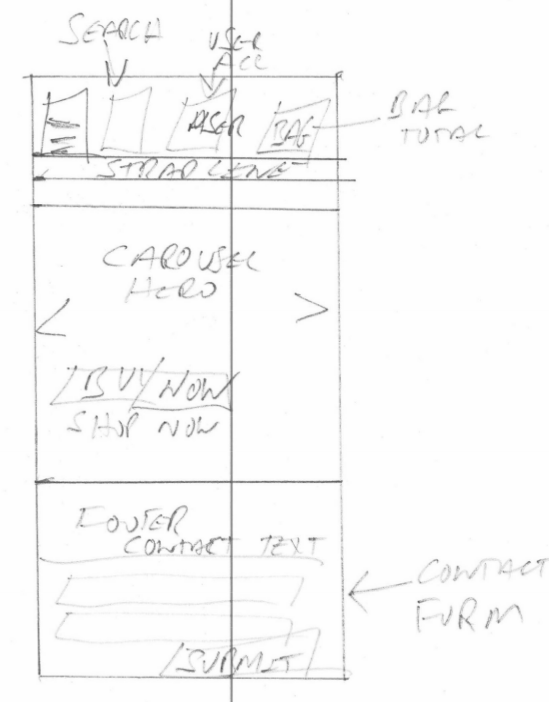 SEARCH
USER
ACC
USER
BAG
BAG
TOTAL
STRAP LINE
CAROUSEL
HERO
BUY NOW
SHOP NOW
FOOTER
CONTACT TEXT
CONTACT
FORM
SUBMIT